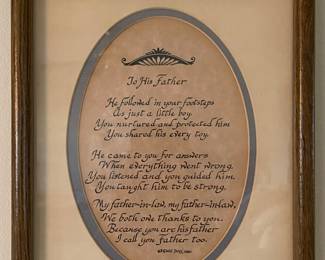 To His Father
He followed in your footsteps
As just a little boy.
You nurtured and protected him
You shared his every toy.
He came to you for answers
When everything went wrong.
You listened and you guided him.
You taught him to be strong.
My father-in-law, my father-in-law,
We both one thanks to you.
Because you are his father
I call you father too.